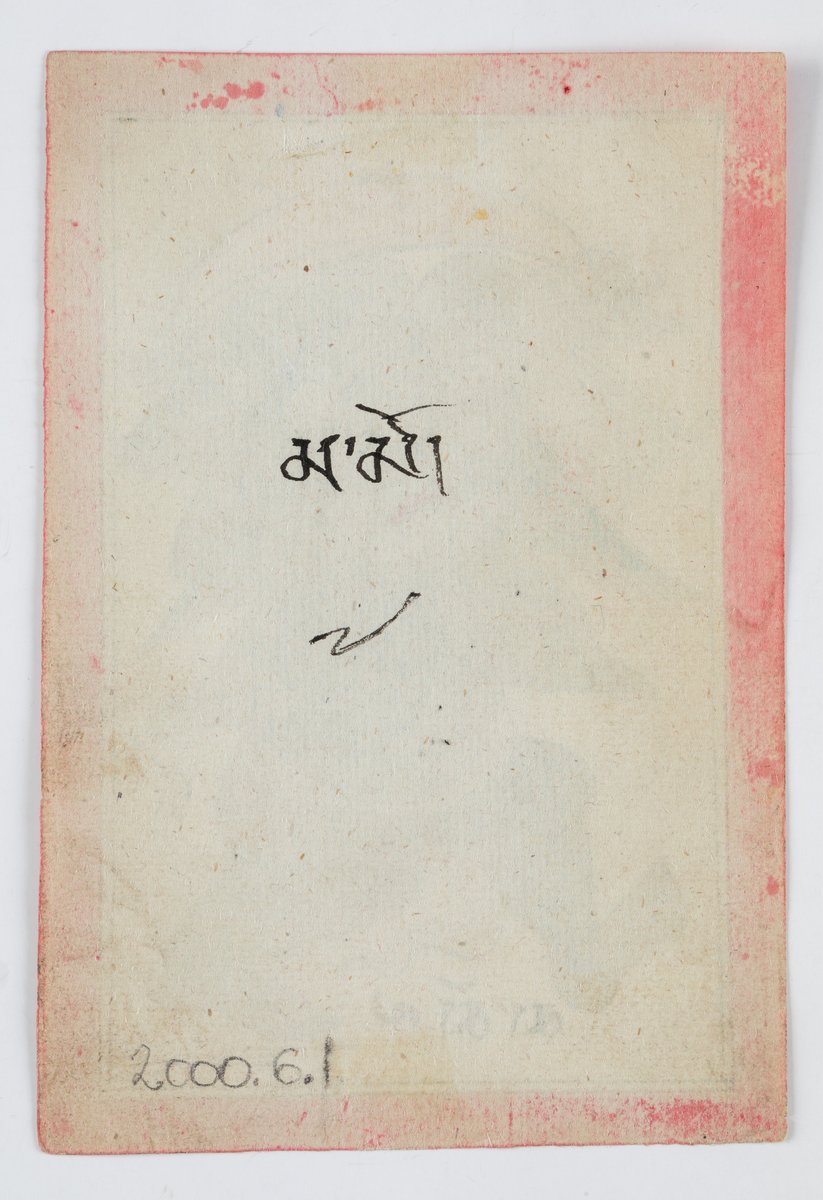 མ་མོ།
2000.6.1